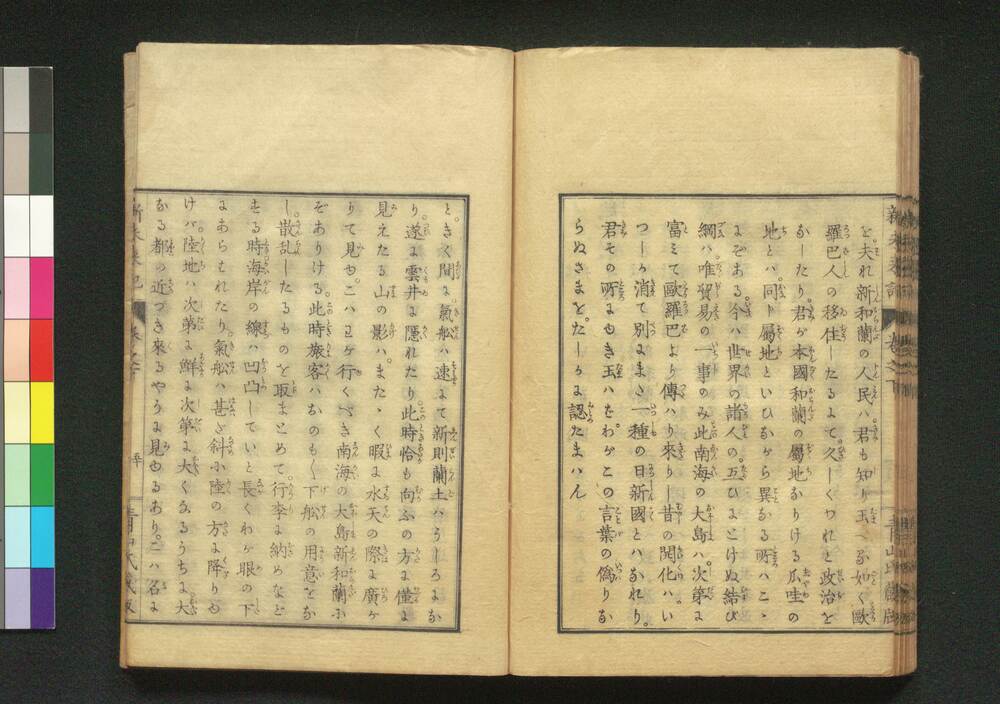 新未来記 巻之下 青山氏蔵版
を。夫れ新和蘭の人民ハ。君も知り玉へる如く歐
羅巴人の移住したるよて。久しくわれと政治を
なしたり。君が本國和蘭の屬地なりける瓜哇の
地とハ。同ト屬地といひながら異なる所ハこゝ
にぞある。今ハ世界の諸人の。互ひにこけぬ結び
綱ハ。唯貿易の一事のみ此南海の大島ハ。次第よ
富ミて歐羅巴より傳ハり來りし昔の開化ハ。い
つしか消て別にまた一種の日新國とハなれり。
君その所にゆき玉ハヾ。わがこの言葉の偽りな
らぬさまを。たしかよ認たまハん
と。きく間よ。氣船ハ速よて新則蘭土ハうしろよな
り。遂よ雲井よ隠れたり。此時恰も向ふの方よ僅よ
見えたる山の影ハ。またゝく暇よ水天の際よ廣が
りて見ゆ。こハわが行くべき南海の大島新和蘭ふ
ぞありける。此時旅客ハおのもく下船の用意をな
し。散乱したるものを取まとめて。行李よ納めなど
せる時海岸の線ハ凹凸していと長くわが眼の下
よあらわれたり。氣船ハ甚ど斜ふ陸の方よ降りゆ
けバ。陸地ハ次第よ鮮よ次第よ大くなるうちよ大
なる都の近づき來るやうよ見ゆるあり。こハ名よ
新未来記 巻之下 青山氏蔵版